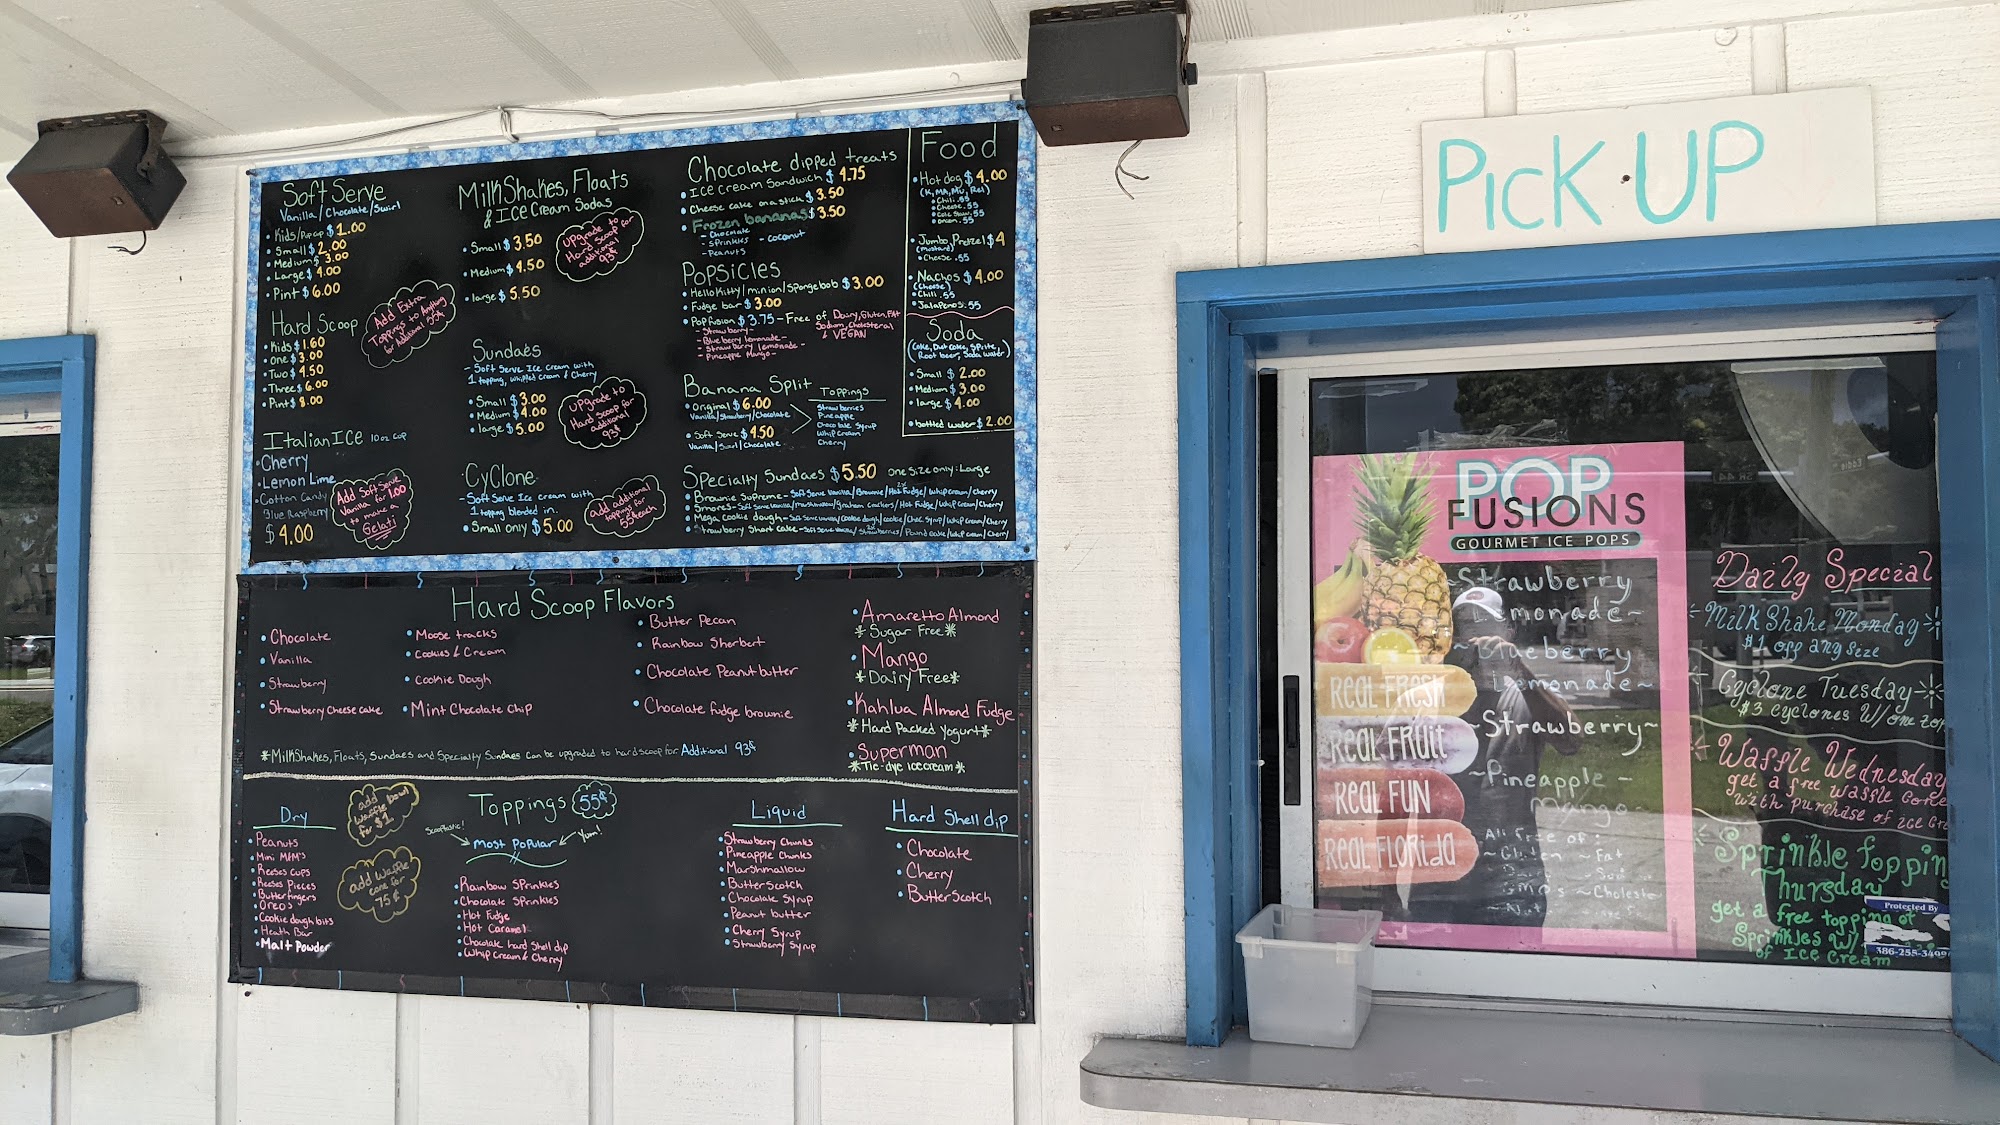 Soft Serve
Vanilla/Chocolate/Swirl
• Kids/Pup cup $1.00
• Small $2.00
• Medium $3.00
• Large $4.00
• Pint $6.00
Add Extra
Toppings to Anything
for Additional 55¢
Hard Scoop
• Kids $1.60
• One $3.00
• Two $4.50
• Three $6.00
• Pint $8.00
Italian ICE 10oz cup
• Cherry
• Lemon Lime
• Cotton Candy
Blue Raspberry
$4.00
Add Soft Serve
Vanilla for 1.00
to make a
Gelati
MilkShakes, Floats
& Ice Cream Sodas
• Small $3.50
• Medium $4.50
• large $5.50
upgrade to
Hard Scoop for
additional
93¢
Sundaes
- Soft Serve Ice cream with
1 topping, whipped cream & Cherry
• Small $3.00
• Medium $4.00
• large $5.00
upgrade to
Hard Scoop for
additional
93¢
Cyclone
- Soft Serve Ice cream with
1 topping blended in.
• Small only $5.00
add additional
toppings for
55¢ each
Chocolate dipped treats
• Ice Cream Sandwich $4.75
• Cheese cake on a stick $3.50
• Frozen bananas $3.50
- Chocolate
- Sprinkles - coconut
- Peanuts
Popsicles
• Hello Kitty/minion/Spongebob $3.00
• Fudge bar $3.00
• Popfusion $3.75 - Free of Dairy, Gluten, FAt
Sodium, Cholesteral
& VEGAN
- Strawberry -
- Blueberry lemonade -
- Strawberry lemonade -
- Pineapple Mango -
Banana Split
• Original $6.00
Vanilla/Strawberry/Chocolate
• Soft Serve $4.50
Vanilla/Swirl/Chocolate
Toppings
Strawberries
Pineapple
Chocolate Syrup
Whip Cream
Cherry
Specialty Sundaes $5.50 one size only: Large
• Brownie Supreme - Soft Serve Vanilla/Brownie/2x Hot Fudge/whip cream/cherry
• Smores - Soft Serve Vanilla/marshmallow/graham crackers/Hot Fudge/whip cream/Cherry
• Mega Cookie dough - Soft Serve Vanilla/Cookie dough/cookie/Choc Syrup/Whip Cream/Cherry
• Strawberry Short cake - Soft Serve Vanilla/2x Strawberries/Pound Cake/whip cream/Cherry
Food
• Hot dog $4.00
(K, MA, Mu, Rel)
• Chili .55
• Cheese .55
• Cole Slaw .55
• Onion .55
• Jumbo Pretzel $4
(mustard)
• Cheese .55
• Nachos $4.00
(Cheese)
• Chili .55
• Jalapenos .55
Soda
(Coke, Diet Coke, Sprite,
Root beer, Soda water)
• Small $2.00
• Medium $3.00
• large $4.00
• bottled water $2.00
Hard Scoop Flavors
• Chocolate
• Vanilla
• Strawberry
• Strawberry Cheesecake
• Moose tracks
• Cookies & Cream
• Cookie Dough
• Mint Chocolate Chip
• Butter Pecan
• Rainbow Sherbert
• Chocolate Peanutbutter
• Chocolate fudge brownie
• Amaretto Almond
*Sugar Free*
• Mango
*Dairy Free*
• Kahlua Almond Fudge
*Hard Packed Yogurt*
• Superman
*Tie-dye icecream*
*MilkShakes, Floats, Sundaes and Specialty Sundaes can be upgraded to hard scoop for Additional 93¢
Dry
• Peanuts
• Mini M&M's
• Reeses cups
• Reeses Pieces
• Butterfingers
• Oreos
• Cookie dough bits
• Heath Bar
• Malt Powder
add
Waffle bowl
for $1
add waffle
cone for
75¢
Toppings 55¢
Scooptastic! Yum!
most Popular
• Rainbow Sprinkles
• Chocolate Sprinkles
• Hot Fudge
• Hot Caramel
• Chocolate hard Shell dip
• Whip Cream & Cherry
Liquid
• Strawberry Chunks
• Pineapple Chunks
• Marshmallow
• Butterscotch
• Chocolate Syrup
• Peanut butter
• Cherry Syrup
• Strawberry Syrup
Hard Shell dip
• Chocolate
• Cherry
• ButterScotch
PicK UP
POP
FUSIONS
GOURMET ICE POPS
~Strawberry
Lemonade~
~Blueberry
Lemonade~
~Strawberry~
~Pineapple -
Mango
All Free of:
~Gluten ~Fat
ReaL FResH
ReaL FRUit
ReaL FUN
ReaL FLORida
Daily Special
Milk Shake Monday
$1 off any size
Cyclone Tuesday
$3 Cyclones W/ one top
Waffle Wednesday
get a free waffle Cone
with purchase of ice Cre
Sprinkle topping
Thursday
get a free topping of
Sprinkles w/
of Ice Cream
Protected By
386-255-349